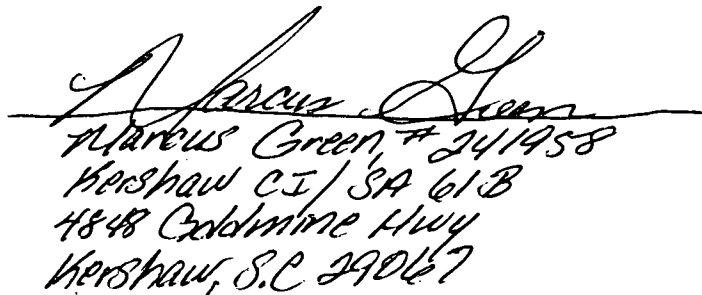 Marcus Green
Marcus Green, # 241958
Kershaw CI / SA 61B
4848 Goldmine Hwy
Kershaw, S.C 29067